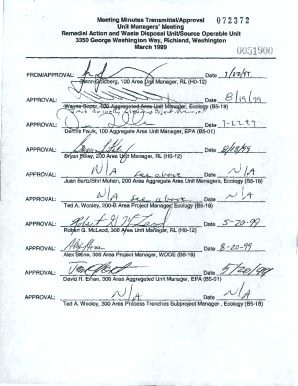 Meeting Minutes Transmittal/Approval
072372
Unit Managers' Meeting
Remedial Action and Waste Disposal Unit/Source Operable Unit
3350 George Washington Way, Richland, Washington
March 1999
0051900
FROM/APPROVAL: Date
Glenn Goldberg, 100 Area Unit Manager, RL (H0-12)
APPROVAL: Date 8/19/99
Wayne Soper, 100 Aggregated Area Unit Manager, Ecology (B5-18)
APPROVAL: Date 7-22-99
Dennis Faulk, 100 Aggregate Area Unit Manager, EPA (B5-01)
APPROVAL: Date
Bryan Foley, 200 Area Unit Manager, RL (H0-12)
APPROVAL: N/A see above Date N/A
Joan Bartz/Shri Mohan, 200 Area Aggregate Area Unit Managers, Ecology (B5-18)
APPROVAL: N/A see above Date N/A
Ted A. Wooley, 200-B Area Project Manager, Ecology (B5-18)
APPROVAL: Date 5-20-99
Robert G. McLeod, 300 Area Unit Manager, RL (H0-12)
APPROVAL: Date 8-20-99
Alex Stone, 300 Area Project Manager, WDOE (B5-18)
APPROVAL: Date 5/20/99
David R. Einan, 300 Area Aggregated Unit Manager, EPA (B5-01)
APPROVAL: N/A Date N/A
Ted A. Wooley, 300 Area Process Trenches Subproject Manager, Ecology (B5-18)